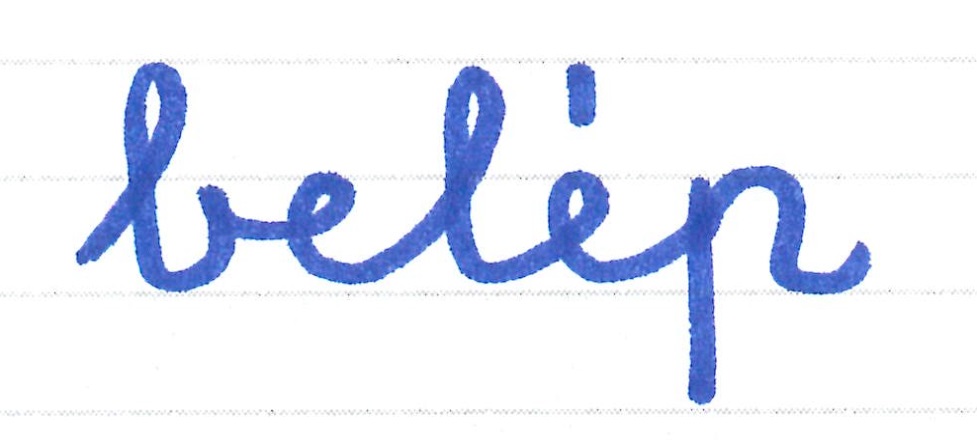 belép